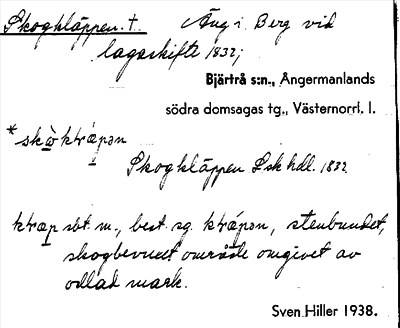 Skogkläppen. t. Äng i Berg vid
lagaskifte 1832;
Bjärtrå s:n., Ångermanlands
södra domsagas tg., Västernorrl. l.
*skὰ̀ktrǽpən
Skogkläppen Lsk hdl. 1832.
ktræp sbt. m., best. sg. ktrǽpən, stenbundet,
skogbevuxet område omgivet av
odlad mark.
Sven Hiller 1938.